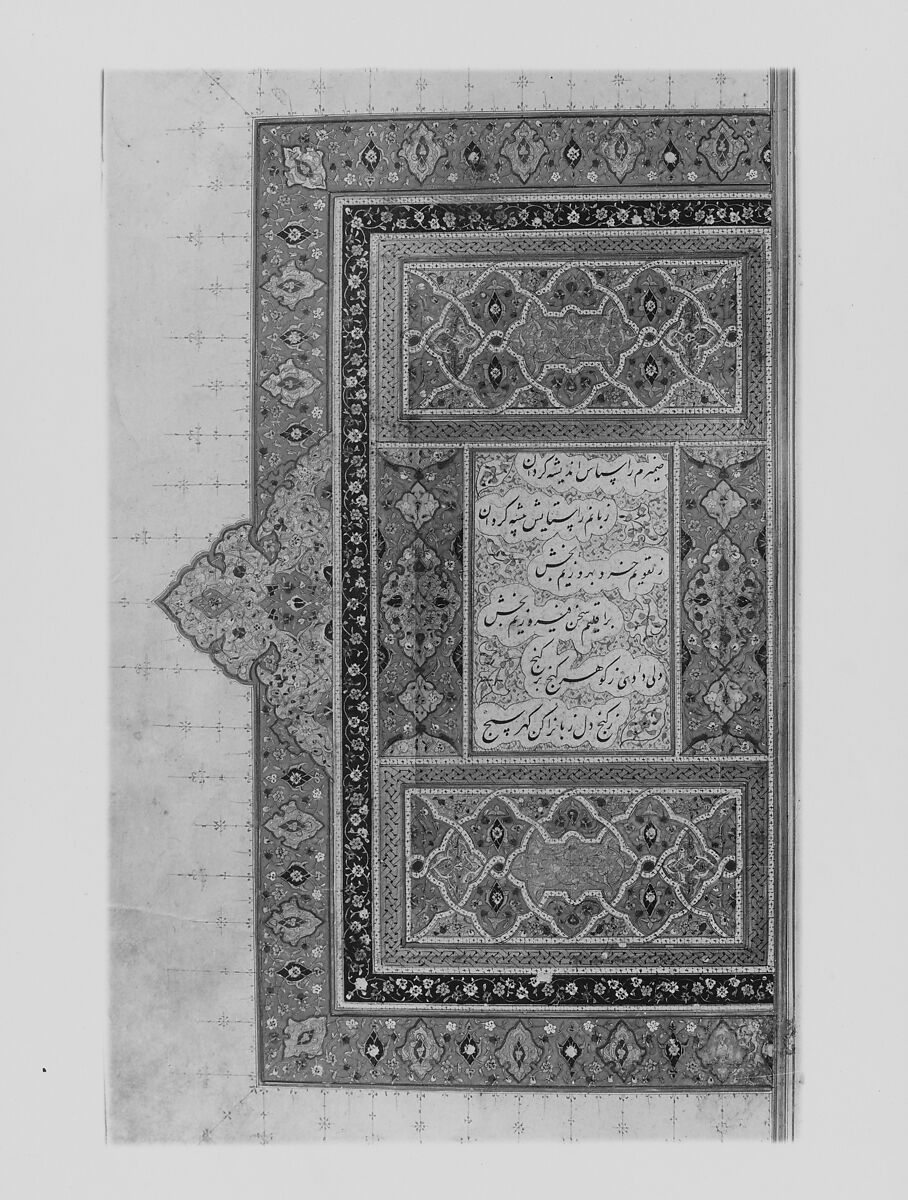 ضمیرم را سپاس اندیشه گردان
زبانم را ستایش پیشه گردان
ز تقویم خرد بهروزیم بخش
بر اقلیم سخن فیروزیم بخش
دلی دادی ز گوهر گنج بر گنج
ز گنج دل زبانرا کن گهر سنج